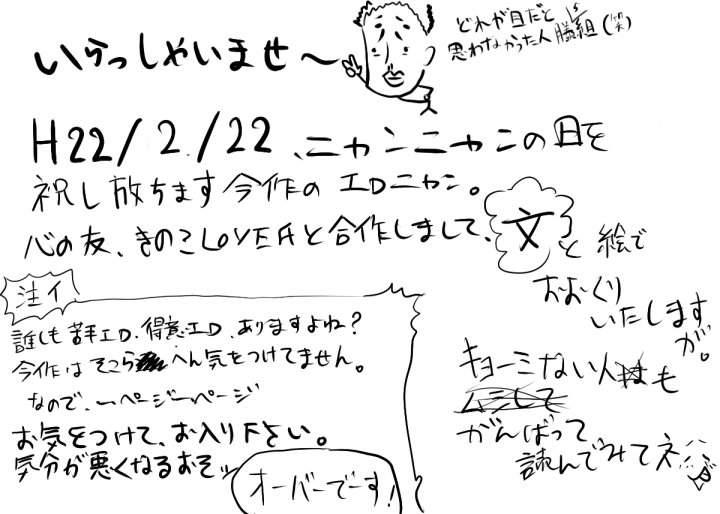 いらっしゃいませ〜
どれが目だと
思わなかった人は勝組(笑)
H22/2/22、ニャンニャンの日を
祝し放ちます今作のエロニャン。
心の友、きのこLOVERと合作しまして、
文と絵で
おおくり
いたします
が。
キョーミない人も
がんばって
読んでみてネ
注イ
誰しも苦手エロ、得意エロ、ありますよね?
今作はそこらへん気をつけてません。
なので、一ページ一ページ
お気をつけて、お入り下さい。
気分が悪くなるおそッ
オーバーでーす!